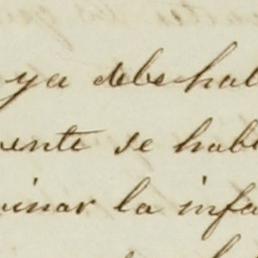 ya debe hab
ente se hab
inar la infa